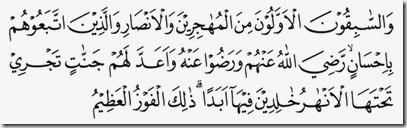 وَالسّٰبِقُوْنَ الْاَوَّلُوْنَ مِنَ الْمُهٰجِرِيْنَ وَالْاَنْصَارِ وَالَّذِيْنَ اتَّبَعُوْهُمْ
بِاِحْسَانٍۙ رَّضِيَ اللّٰهُ عَنْهُمْ وَرَضُوْا عَنْهُ وَاَعَدَّ لَهُمْ جَنّٰتٍ تَجْرِيْ
تَحْتَهَا الْاَنْهٰرُ خٰلِدِيْنَ فِيْهَآ اَبَدًاۗ ذٰلِكَ الْفَوْزُ الْعَظِيْمُ